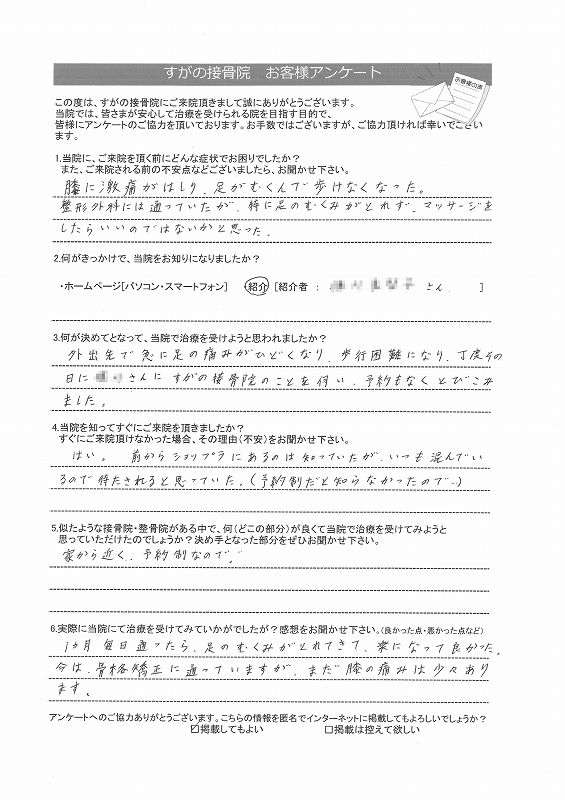 すがの接骨院 お客様アンケート
お客様の声
この度は、すがの接骨院にご来院頂きまして誠にありがとうございます。
当院では、皆さまが安心して治療を受けられる院を目指す目的で、
皆様にアンケートのご協力を頂いております。お手数ではございますが、ご協力頂ければ幸いでござい
ます。
1.当院に、ご来院を頂く前にどんな症状でお困りでしたか?
また、ご来院される前の不安点などございましたら、お聞かせ下さい。
膝に激痛がはしり、足がむくんで歩けなくなった。
整形外科には通っていたが、特に足のむくみがとれず、マッサージを
したらいいのではないかと思った。
2.何がきっかけで、当院をお知りになりましたか?
・ホームページ[パソコン・スマートフォン] 紹介 [紹介者 : さん ]
3.何が決めてとなって、当院で治療を受けようと思われましたか?
外出先で急に足の痛みがひどくなり、歩行困難になり、丁度その
日に さんにすがの接骨院のことを伺い、予約もなくとびこみ
ました。
4.当院を知ってすぐにご来院を頂きましたか?
すぐにご来院頂けなかった場合、その理由(不安)をお聞かせ下さい。
はい。 前からショップラにあるのは知っていたが、いつも混んでい
るので待たされると思っていた。(予約制だと知らなかったので…)
5.似たような接骨院・整骨院がある中で、何(どこの部分)が良くて当院で治療を受けてみようと
思っていただけたのでしょうか?決め手となった部分をぜひお聞かせ下さい。
家から近く、予約制なので。
6.実際に当院にて治療を受けてみていかがでしたが?感想をお聞かせ下さい。(良かった点・悪かった点など)
1ヵ月毎日通ったら、足のむくみがとれてきて、楽になって良かった。
今は、骨格矯正に通っていますが、まだ膝の痛みは少々あり
ます。
アンケートへのご協力ありがとうございます。こちらの情報を匿名でインターネットに掲載してもよろしいでしょうか?
☑掲載してもよい □掲載は控えて欲しい